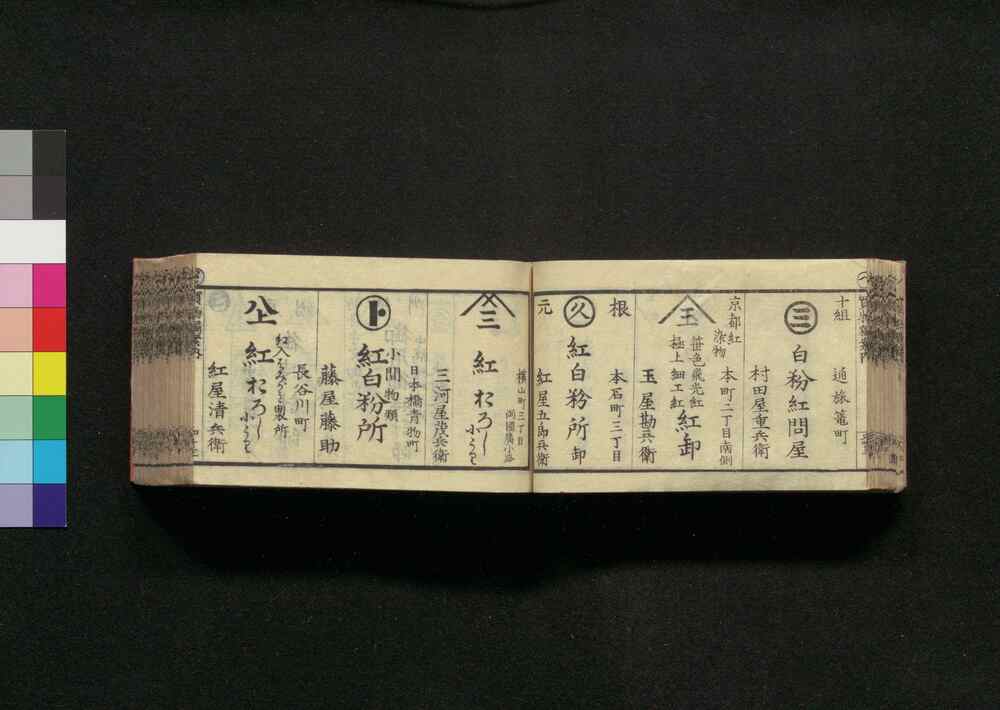 十組
通旅篭町
三
白粉紅問屋
村田屋重兵衛
京都紅
染物
本町二丁目南側
玉
笹色飛光紅
極上細工紅
紅卸
玉屋勘兵衛
根
本石町三丁目
久
紅白粉所
卸
元
紅屋五郎兵衛
横山町三丁目
両國廣小路
三
紅おろし
小うり
三河屋茂兵衛
日本橋青物町
小間物類
ト
紅白粉所
藤屋藤助
長谷川町
製所
紅おろし
小うり
紅屋清兵衛